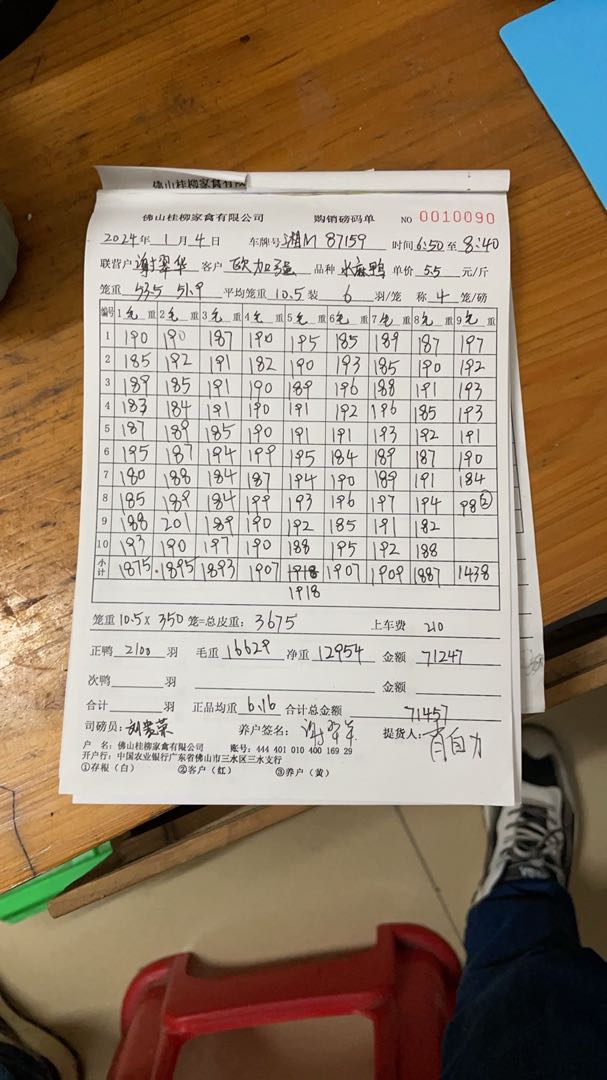 佛山桂柳家禽有限
佛山桂柳家禽有限公司 购销磅码单 NO 0010090
2024年 1月 4日 车牌号 湘M 87159 时间 6:50 至 8:40
联营户 谢翠华 客户 欧加强 品种 水麻鸭 单价 5.5 元/斤
笼重 53.5 51.9 平均笼重 10.5 装 6 羽/笼 称 4 笼/磅
编号 1毛 重 2毛 重 3毛 重 4毛 重 5毛 重 6毛 重 7毛 重 8毛 重 9毛 重
1 190 190 187 190 195 185 189 187 197
2 185 192 191 182 190 193 185 190 192
3 189 185 191 190 189 196 188 191 193
4 183 184 191 190 191 192 196 185 193
5 187 189 185 190 191 191 193 192 191
6 195 187 194 199 195 184 189 187 190
7 180 188 184 187 194 190 189 191 184
8 185 189 184 199 193 196 197 194 98②
9 188 201 189 190 192 185 191 182
10 193 190 197 190 188 195 192 188
小计 1875 1895 1893 1907 1918 1907 1909 1887 1438
1918
笼重 10.5 x 350 笼=总皮重: 3675 上车费 210
正鸭 2100 羽 毛重 16629 净重 12954 金额 71247
次鸭 羽 金额
合计 羽 正品均重 6.16 合计总金额 71457
司磅员: 养户签名: 谢翠华 提货人: 自力
户 名: 佛山桂柳家禽有限公司 账号: 444 401 010 400 169 29
开户行: 中国农业银行广东省佛山市三水区三水支行
①存根（白） ②客户（红） ③养户（黄）